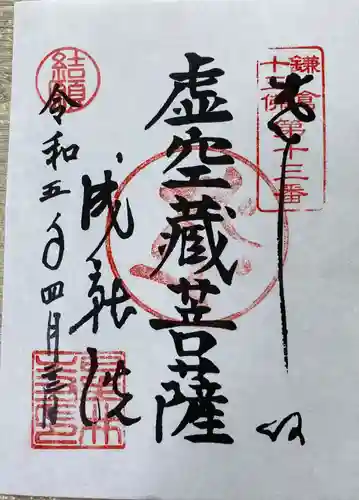 奉拝
鎌倉
十三佛第十三番
虚空蔵菩薩
成就院
結願
令和五年四月三日